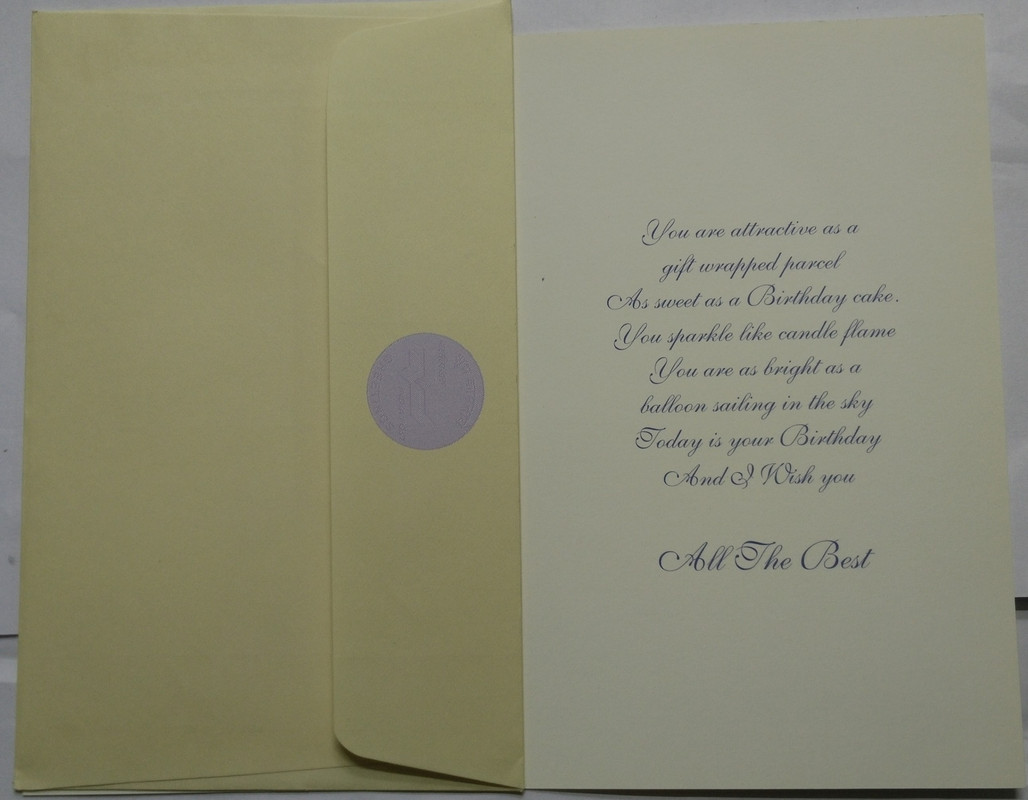 You are attractive as a
gift wrapped parcel
As sweet as a Birthday cake.
You sparkle like candle flame
You are as bright as a
balloon sailing in the sky
Today is your Birthday
And I Wish you
All The Best